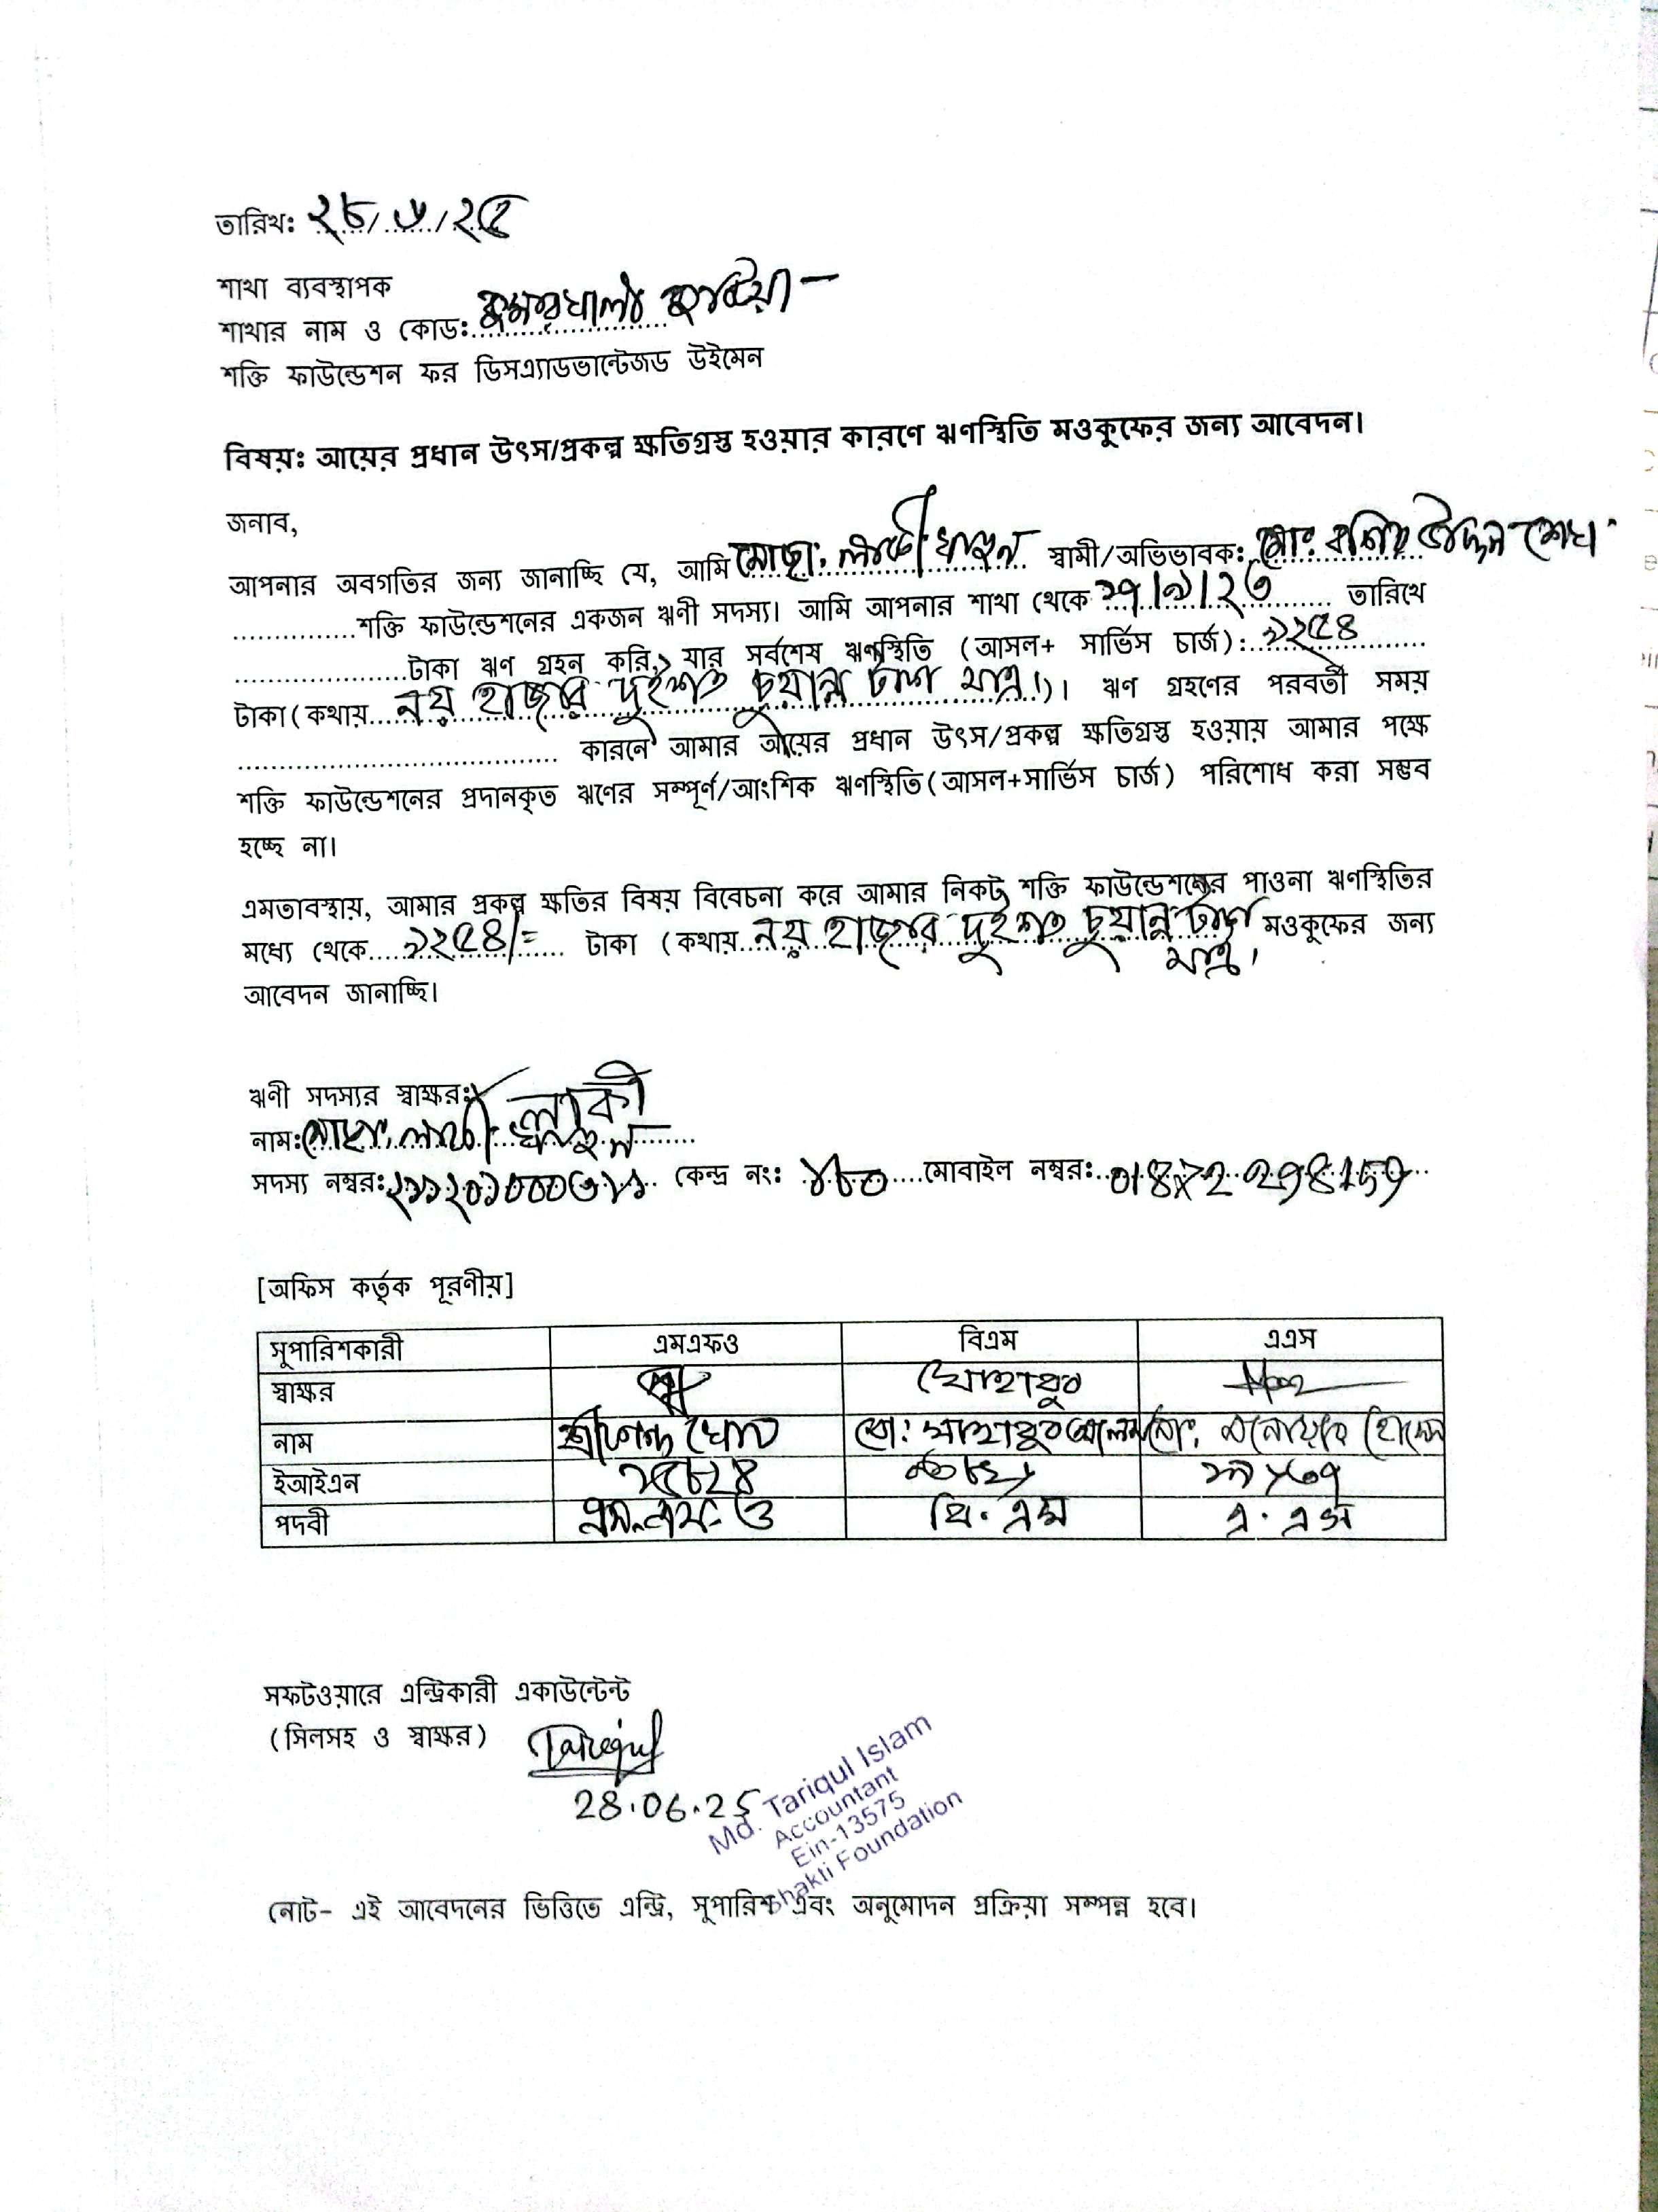 তারিখঃ ২৮/৬/২৫
শাখা ব্যবস্থাপক
শাখার নাম ও কোড: কুমারখালী কুষ্টিয়া -
শক্তি ফাউন্ডেশন ফর ডিসএ্যাডভান্টেজড উইমেন
বিষয়ঃ আয়ের প্রধান উৎস/প্রকল্প ক্ষতিগ্রস্ত হওয়ার কারণে ঋণস্থিতি মওকুফের জন্য আবেদন।
জনাব,
আপনার অবগতির জন্য জানাচ্ছি যে, আমি মোছা: লাকী খাতুন স্বামী/অভিভাবক: মোঃ বশির উদ্দিন শেখ
শক্তি ফাউন্ডেশনের একজন ঋণী সদস্য। আমি আপনার শাখা থেকে ১৭/৯/২৩ তারিখে
টাকা ঋণ গ্রহন করি, যার সর্বশেষ ঋণস্থিতি (আসল+ সার্ভিস চার্জ): ৯২৫৪
টাকা(কথায় নয় হাজার দুইশত চুয়ান্ন টাকা মাত্র।)। ঋণ গ্রহণের পরবর্তী সময়
কারনে আমার আয়ের প্রধান উৎস/প্রকল্প ক্ষতিগ্রস্ত হওয়ায় আমার পক্ষে
শক্তি ফাউন্ডেশনের প্রদানকৃত ঋণের সম্পূর্ণ/আংশিক ঋণস্থিতি(আসল+সার্ভিস চার্জ) পরিশোধ করা সম্ভব
হচ্ছে না।
এমতাবস্থায়, আমার প্রকল্প ক্ষতির বিষয় বিবেচনা করে আমার নিকট শক্তি ফাউন্ডেশনের পাওনা ঋণস্থিতির
মধ্যে থেকে ৯২৫৪/= টাকা (কথায় নয় হাজার দুইশত চুয়ান্ন টাকা মাত্র। মওকুফের জন্য
আবেদন জানাচ্ছি।
ঋণী সদস্যর স্বাক্ষর: লাকী
নাম: মোছা: লাকী খাতুন
সদস্য নম্বর: কেন্দ্র নং: মোবাইল নম্বর:
[অফিস কর্তৃক পূরণীয়]
সুপারিশকারী এমএফও বিএম এএস
স্বাক্ষর
নাম মো:
ইআইএন ১৫৮২৪
পদবী এম.এফ.ও বি.এম এ.এস
সফটওয়ারে এন্ট্রিকারী একাউন্টেন্ট
(সিলসহ ও স্বাক্ষর) Tariqul
28.06.25
Md. Tariqul Islam
Accountant
Ein-13575
Shakti Foundation
নোট- এই আবেদনের ভিত্তিতে এন্ট্রি, সুপারিশ এবং অনুমোদন প্রক্রিয়া সম্পন্ন হবে।